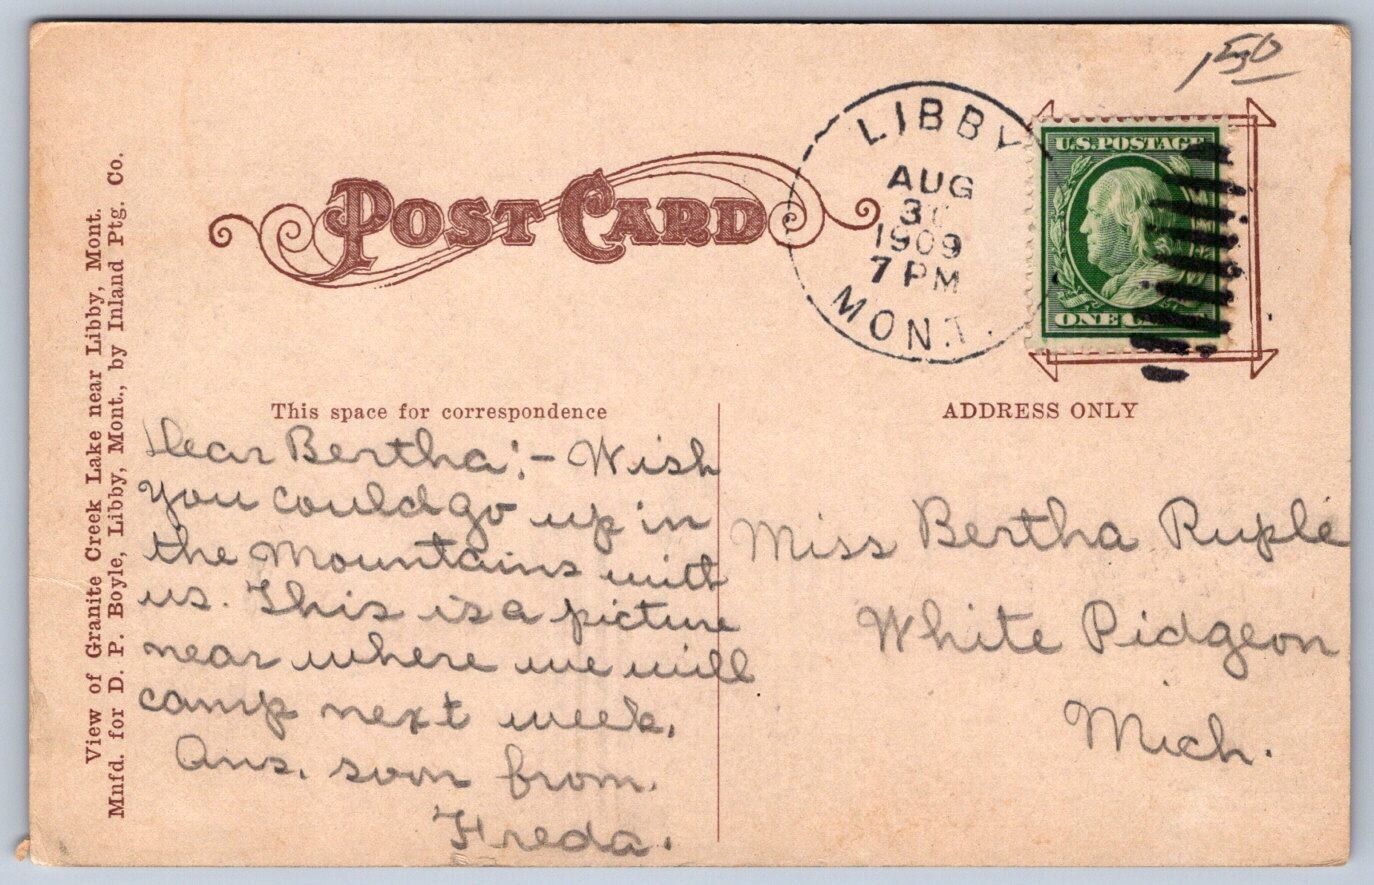 150
POST CARD
LIBBY
AUG
1909
7 PM
MONT.
U.S. POSTAGE
ONE
View of Granite Creek Lake near Libby, Mont.
Mnfd. for D. P. Boyle, Libby, Mont., by Inland Ptg. Co.
This space for correspondence
Dear Bertha:- Wish
you could go up in
the Mountains with
us. This is a picture
near where we will
camp next week.
Ans. soon from
Freda.
ADDRESS ONLY
Miss Bertha Ruple
White Pidgeon
Mich.